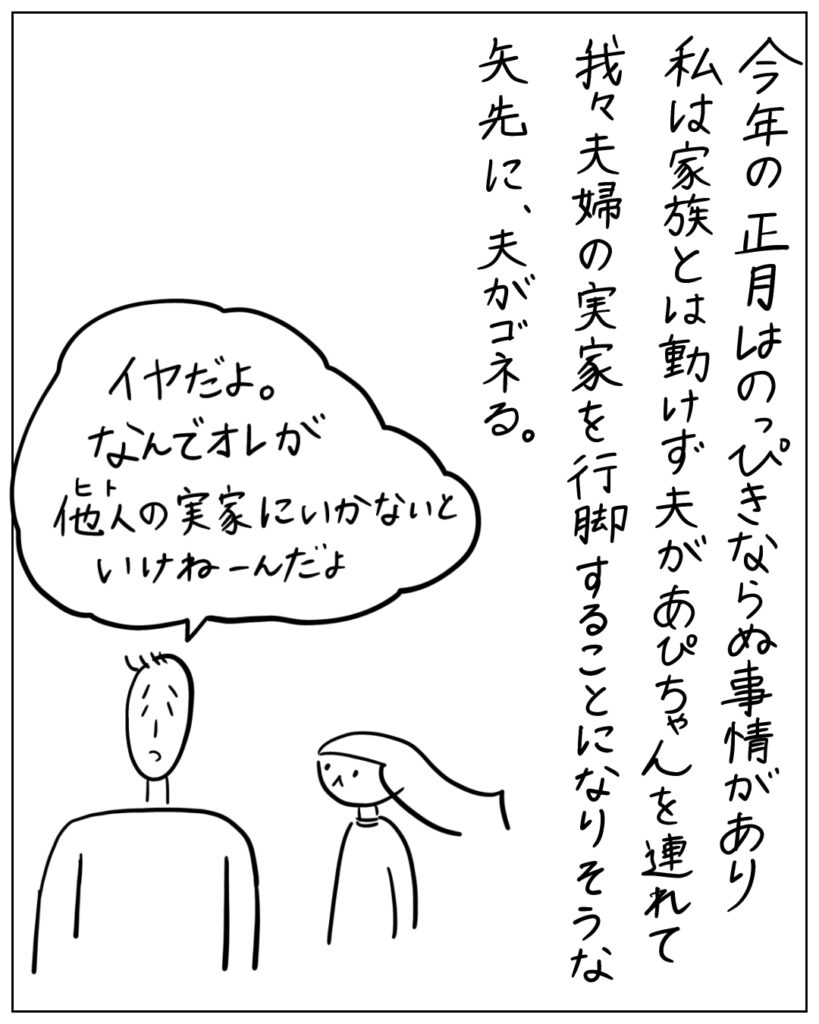 今年の正月はのっぴきならぬ事情があり
私は家族とは動けず夫があぴちゃんを連れて
我々夫婦の実家を行脚することになりそうな
矢先に、夫がゴネる。
イヤだよ。
なんでオレが
他人の実家にいかないと
ヒト
いけねーんだよ